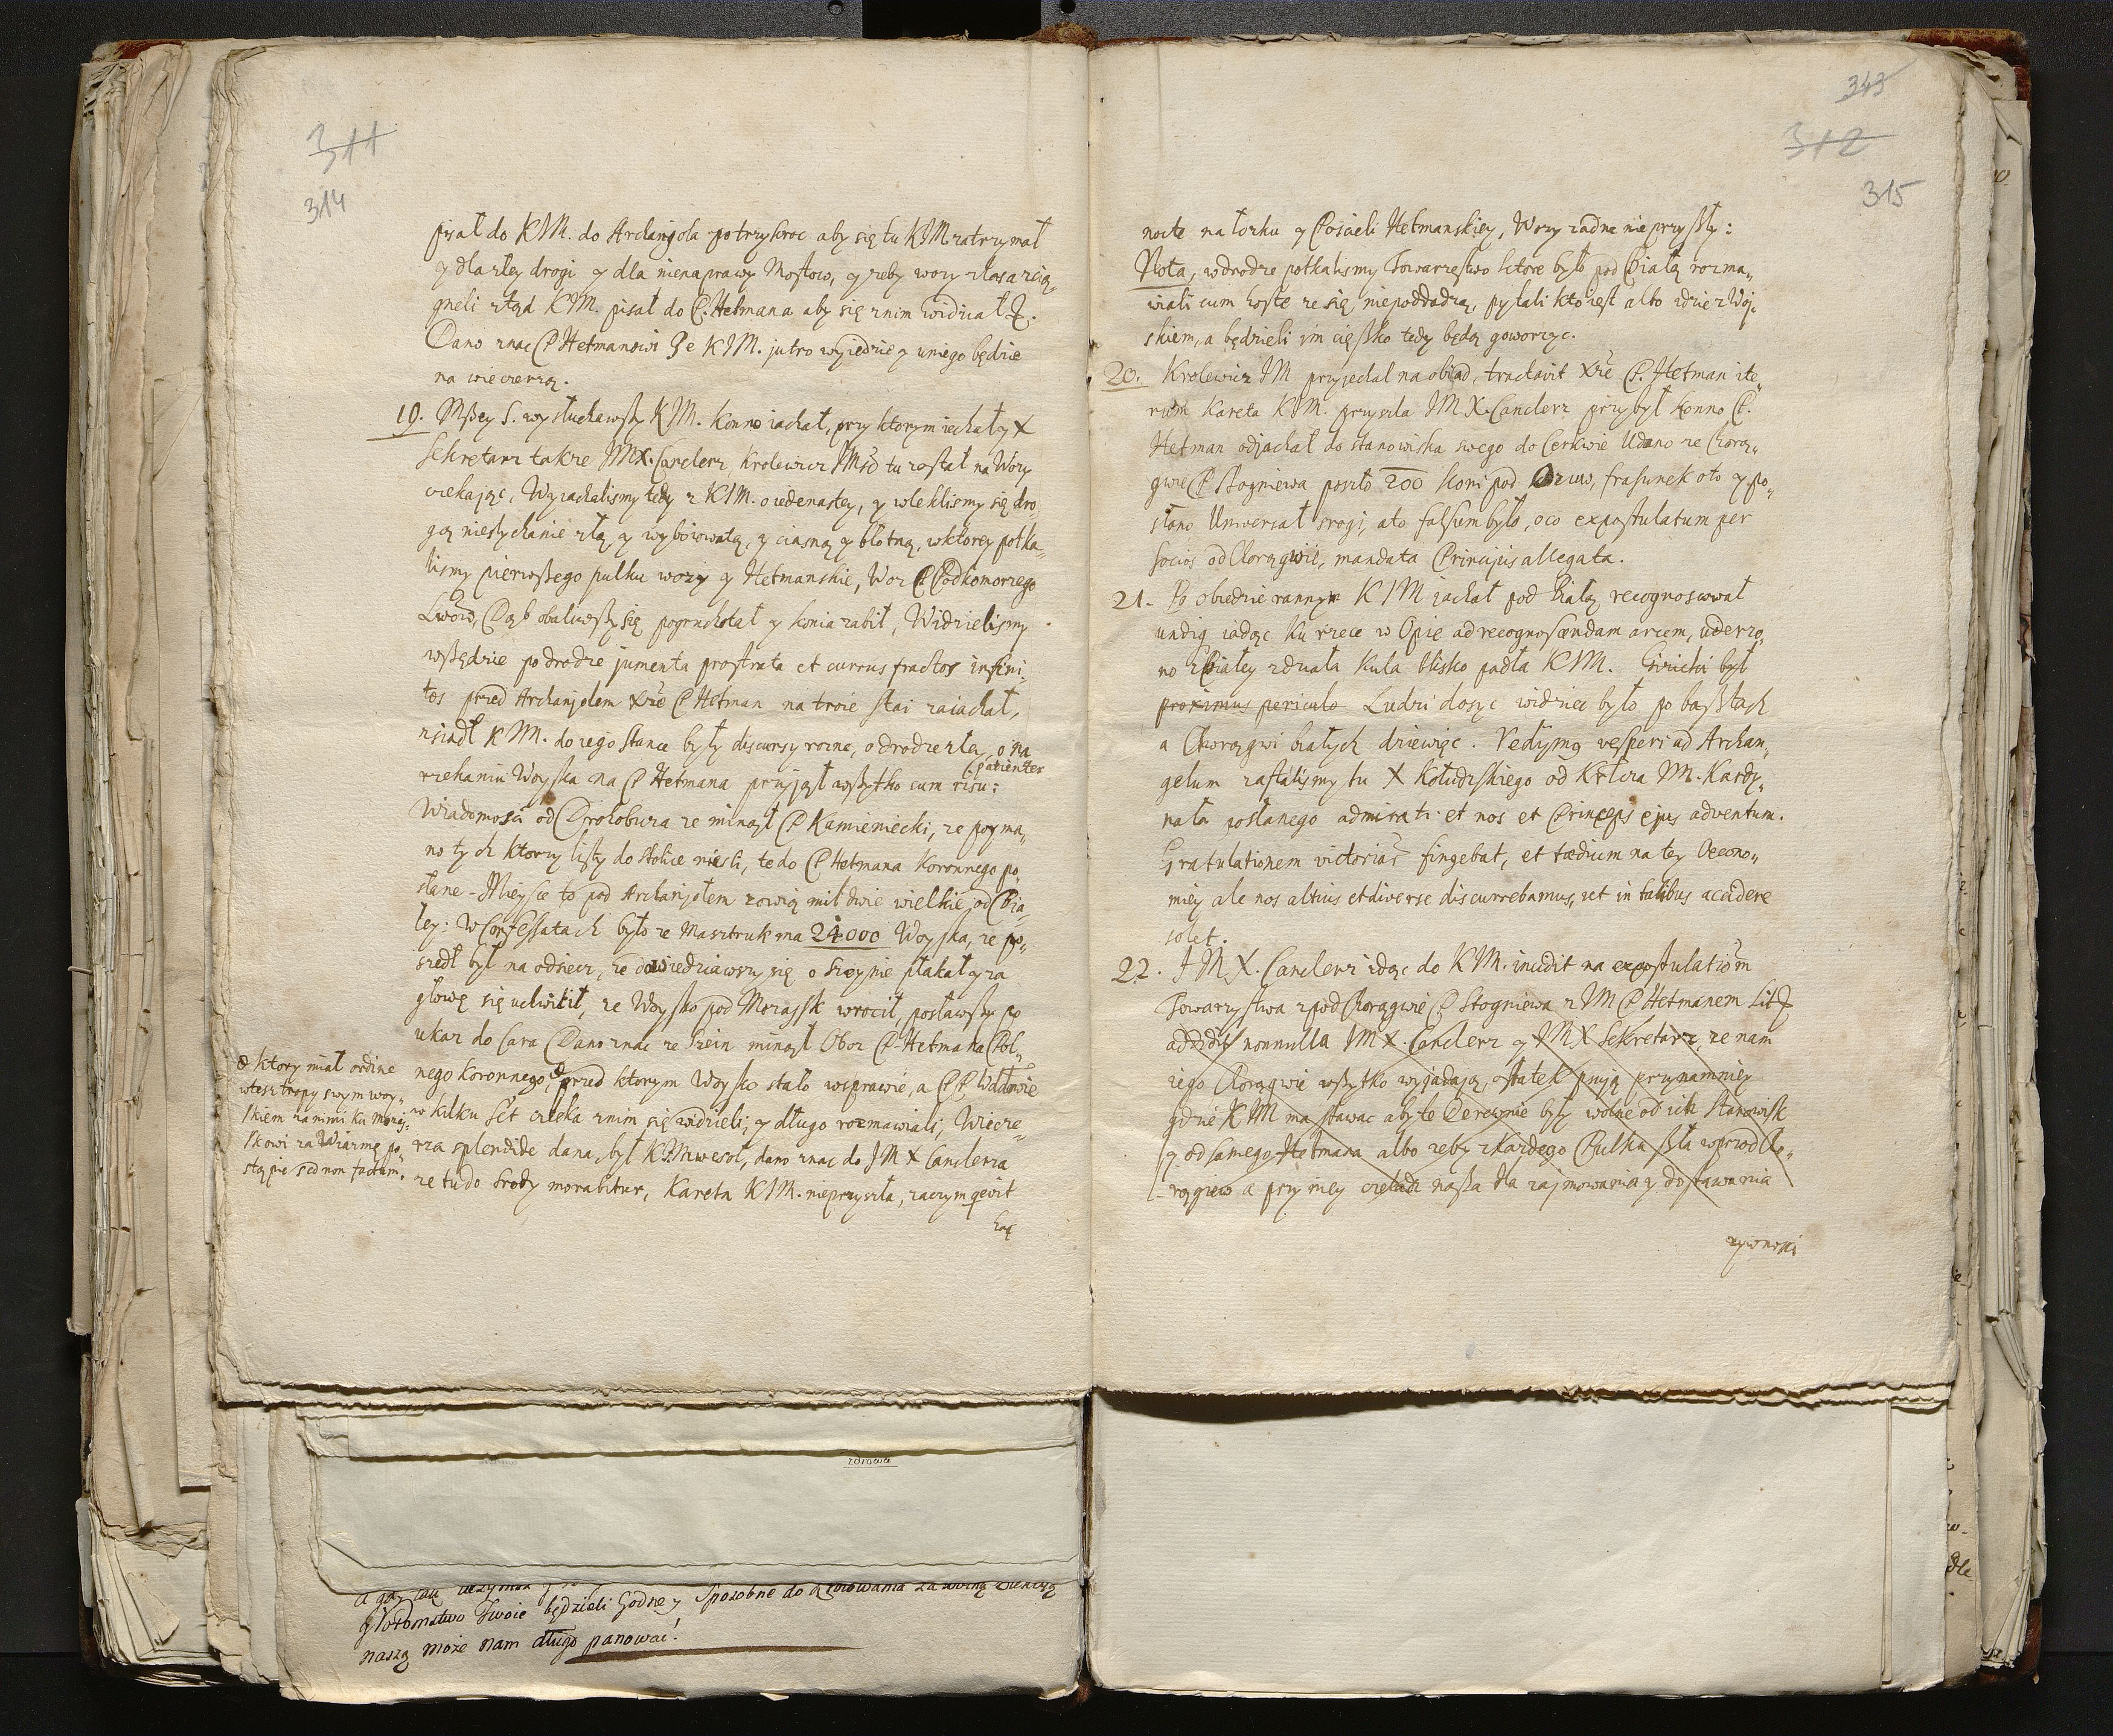 311
314
pisał do KJM. do Archanjoła potrzykroc aby się tu KJM zatrzymał
y dla złey drogi y dla nienaprawy Mostow, y zeby wozy zkosa ścią„
gneli ztąd KJM. pisał do P. Hetmana aby się znim widział
Dano znac P Hetmanowi Ze KJM. jutro wyjedzie y uniego będzie
na wieczerzą.
19. Mszey S. wysłuchawszy KJM. konno iachał, przy ktorym iechał y X
Sekretarz takze JMX. Canclerz Krolewicz JMsc tu został na Wozy
czekając, Wyiachalismy tedy z KJM. o iedenastey, y wleklismy się dro„
gą niesłychanie złą y wyboiowatą, y ciasną y błotną, wktorey potka„
lismy pierwszego pułku wozy y Hetmanskie, Woz P. Podkomorzego
Lwow, Dąb obaliwszy się pogruchotał y konia zabił, Widzielismy
wszędzie podrodze jumenta prostrata et currus fractos infini„
tos przed Archanjołem Xże P Hetman na troie stai zaiachał,
zsiadł KJM. do iego Stance były discursy rozne, o drodze złey, o na„
rzekaniu Woyska na P Hetmana przyjął wszytko cum risu:
patienter
Wiadomosci od Drohobuza ze minął P Kamieniecki, ze poyma„
no tych ktorzy listy do Stolice niesli, te do P Hetmana koronnego po„
słane - Mieysce to pod Archanjołem zowią mil dwie wielkie od Bia„
ley: W Confessatach było ze Masztruk ma 24000 Woyska, ze po„
szedł był na odsiecz, ze dowiedziawszy się o Szeynie płakał y za
głowę się uchwicił, ze Woysko pod Mozaysk wrocił, posławszy po
ukaz do Cara Dano znac ze Szein minął Oboz P. Hetmana Pol„
nego koronnego, przed ktorym Woysko stało wsprawie, a PP Wdowie
w kilku set człeka znim się widzieli, y długo rozmawiali, Wiecze„
rza splendide dana, był KJM wesoł, dano znac do JM X Canclerza
ze tu do Srody morabitur, Kareta KJM. nieprzyszła, zaczym qevit
hac
ktory miał ordine
wtesz tropy swym woy„
skiem zanimi ku Mozay„
skowi za Wiazmę po„
stąpic sed non factum.
zdrowia
y Potomstwo Twoie będzieli Godne y Sposobne do
naszą może nam długo panować!
343
312
315
nocte na łozku y Poscieli Hetmanskiey, Wozy zadne nieprzyszły:
Nota, wdrodze potkalismy Towarzystwo ktore było pod Białą rozma„
wiali cum hoste ze się niepoddadzą, pytali kto iest albo idzie z Woy„
skiem, a będzieli im ciężko tedy będą goworzyc.
20. Krolewicz JM przyjechał na obiad, tractavit Xże P. Hetman ite„
rum Kareta KJM. przyszła JMX. Canclerz przybył konno P.
Hetman odjachał do stanowiska swego do Cerkwie Udano ze Chorą„
gwie P Stogniewa poszło 200 koni pod , frasunek oto y po„
słano Uniwersał srogi, ato falsum było, oco expostulatum per
socios od Chorągwie, mandata Principis allegata.
21. Po obiedzie rannym KJM jachał pod Białą recognoscował
undiq iadąc ku rzece w Opie ad recognoscendam arcem, uderzo„
no z Białey z działa kula blisko padła KJM. był
proximus periculo Ludzi dosyc widziec było po basztach
a Chorągwi białych dziewięc. Redijmq vesperi ad Archan„
gelum zastalismy tu X Kołudzkiego od Krlwza JM. Kardy„
nała posłanego admirati et nos et Princeps ejus adventum.
Gratulationem victoriae fingebat, et taedium na tey Oecono„
miey ale nos altius et diverse discurrebamus, ut in talibus accidere
solet.
22. JMX. Canclerz idąc do KJM. incidit na expostulatiom
Towarzystwa zpod Chorągwie P Stogniewa z JM P Hetmanem Lit
addidit nonnulla JMX. Canclerz y JMX Sekretarz, ze nam
iego Chorągwie wszytko wyjadają, ostatek psują przynamniey
gdzie KJM ma stawac aby te Derewnie były wolne od ich Stanowisk
y od samego Hetmana albo zeby zkazdego Pułku szła wprzod Cho„
rągiew a przy niey czeladz nasza dla zajmowania y dostawania
zywnosci